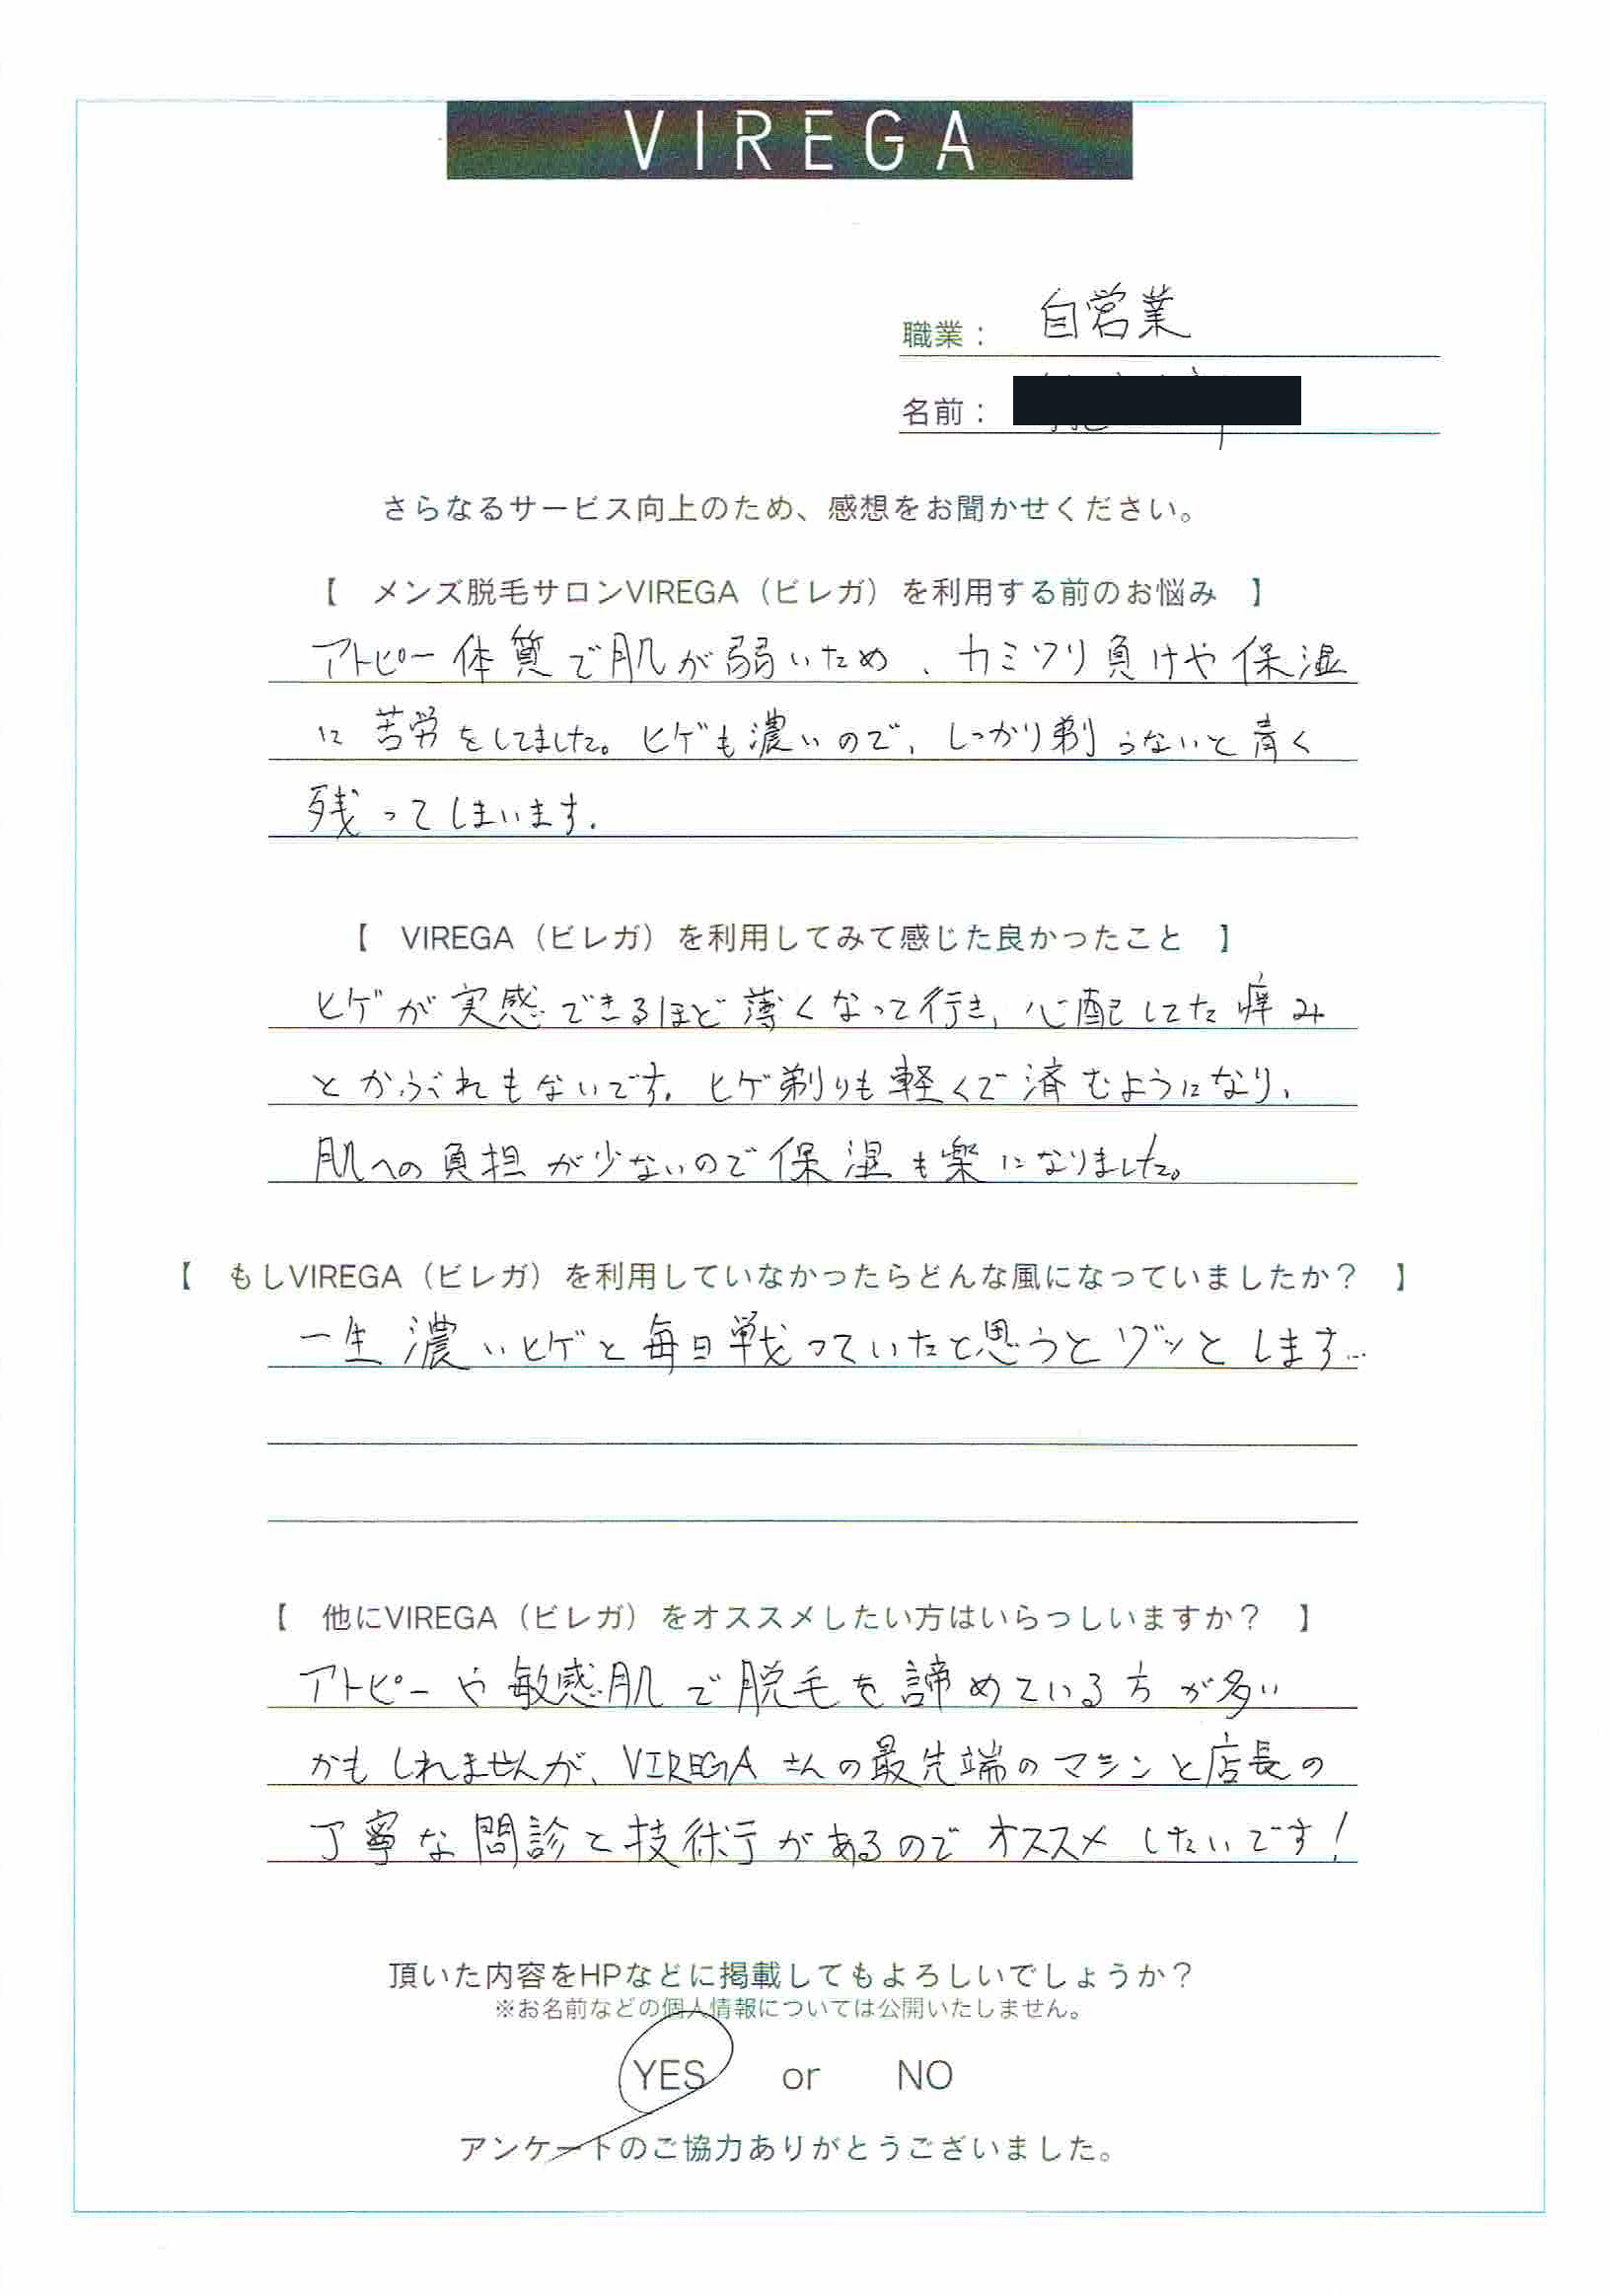 VIREGA
職業： 自営業
名前：
さらなるサービス向上のため、感想をお聞かせください。
【 メンズ脱毛サロンVIREGA（ビレガ）を利用する前のお悩み 】
アトピー体質で肌が弱いため、カミソリ負けや保湿
に苦労をしてました。ヒゲも濃いので、しっかり剃らないと青く
残ってしまいます.
【 VIREGA（ビレガ）を利用してみて感じた良かったこと 】
ヒゲが実感できるほど薄くなって行き、心配してた痒み
とかぶれもないです。ヒゲ剃りも軽くで済むようになり、
肌への負担が少ないので保湿も楽になりました。
【 もしVIREGA（ビレガ）を利用していなかったらどんな風になっていましたか？ 】
一生濃いヒゲと毎日戦っていたと思うとゾッとします…
【 他にVIREGA（ビレガ）をオススメしたい方はいらっしいますか？ 】
アトピーや敏感肌で脱毛を諦めている方が多い
かもしれませんが、VIREGAさんの最先端のマシンと店長の
丁寧な問診と技術力があるのでオススメしたいです！
頂いた内容をHPなどに掲載してもよろしいでしょうか？
※お名前などの個人情報については公開いたしません。
YES or NO
アンケートのご協力ありがとうございました。